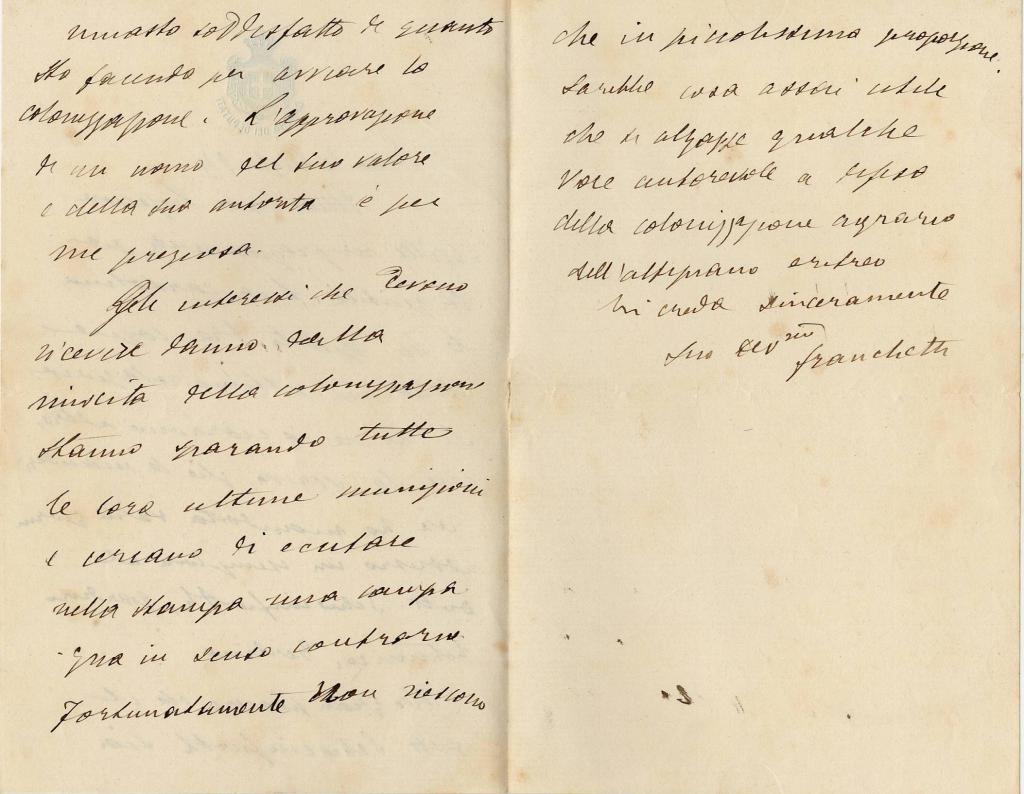 rimasto soddisfatto di quanto
sto facendo per avviare la
colonizzazione. L'approvazione
di un uomo del suo valore
e della sua autorità è per
me preziosa.
Gli interessi che devono
ricevere danno dalla
riuscita della colonizzazione
stanno sparando tutte
le loro ultime munizioni
e cercano di eccitare
nella stampa una campa
gna in senso contrario
Fortunatamente non riescono
che in piccolissima proporzione.
Sarebbe cosa assai utile
che si alzasse qualche
voce autorevole a difesa
della colonizzazione agraria
dell'altipiano eritreo
Mi creda sinceramente
Suo dev.mo
Franchetti